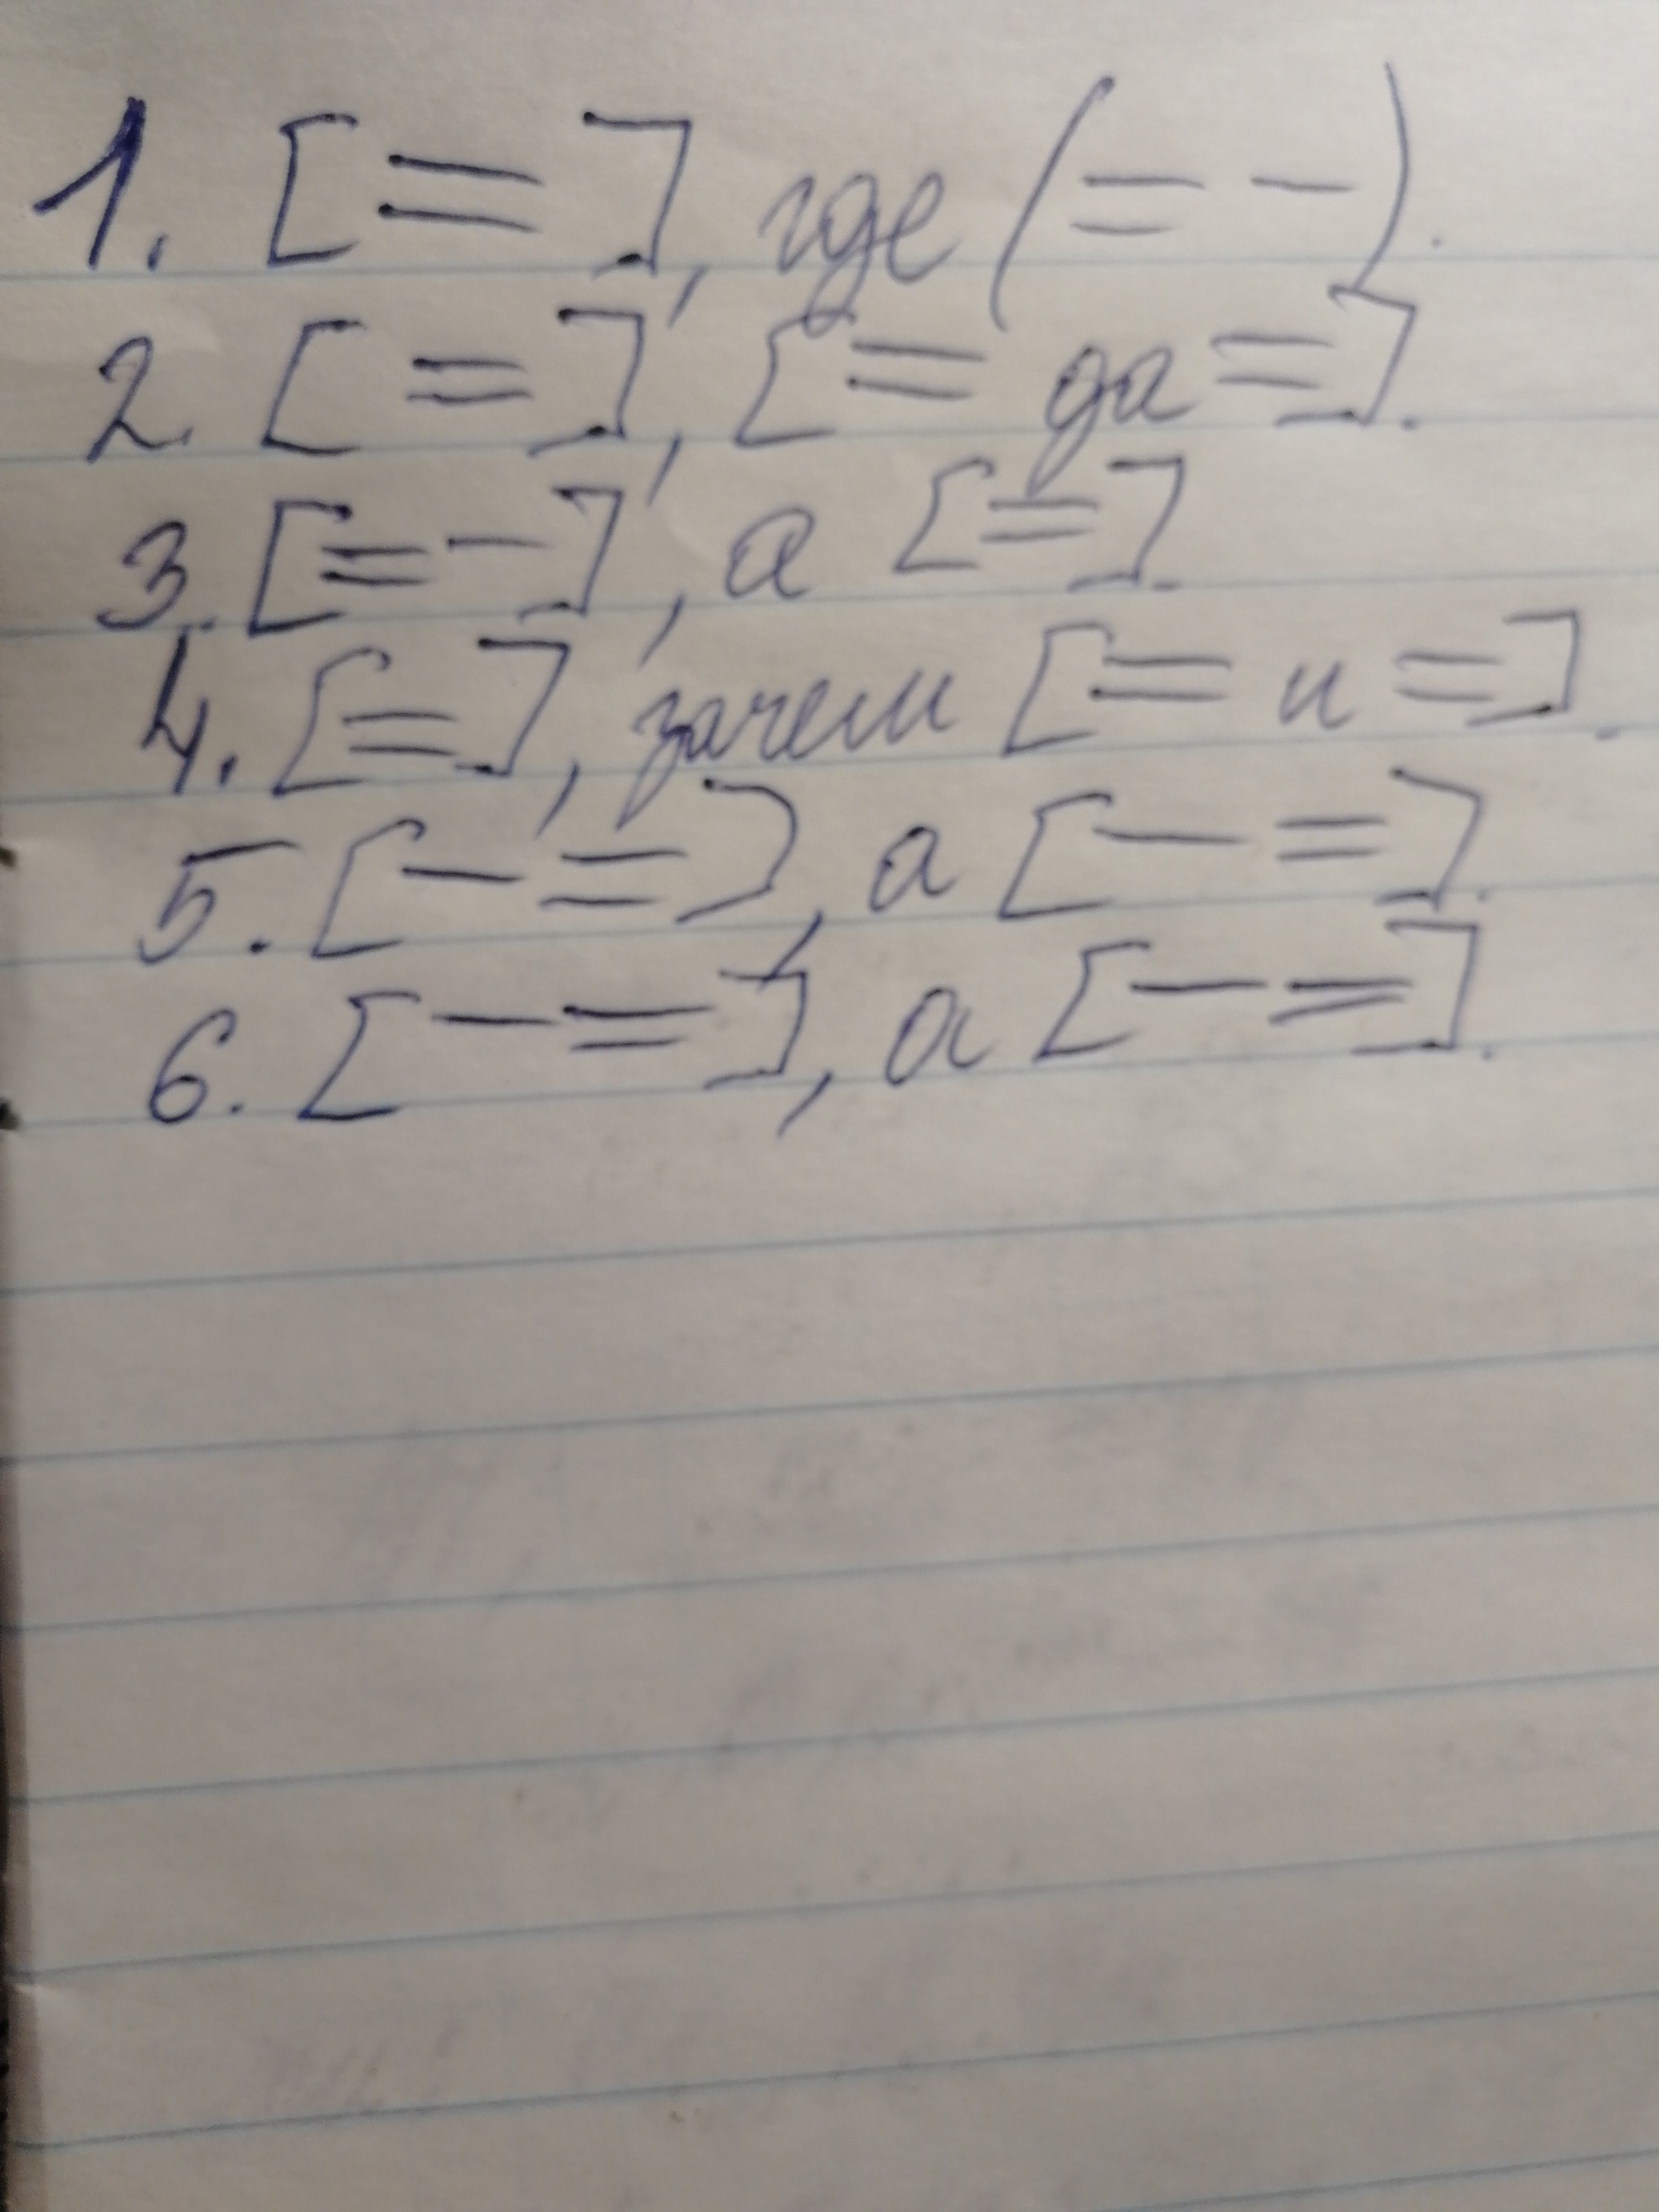 1. [=], где (= –).
2. [=], [= да =].
3. [= –], а [=].
4. [=], зачем [= и =].
5. [– =], а [– =].
6. [– =], а [– =].